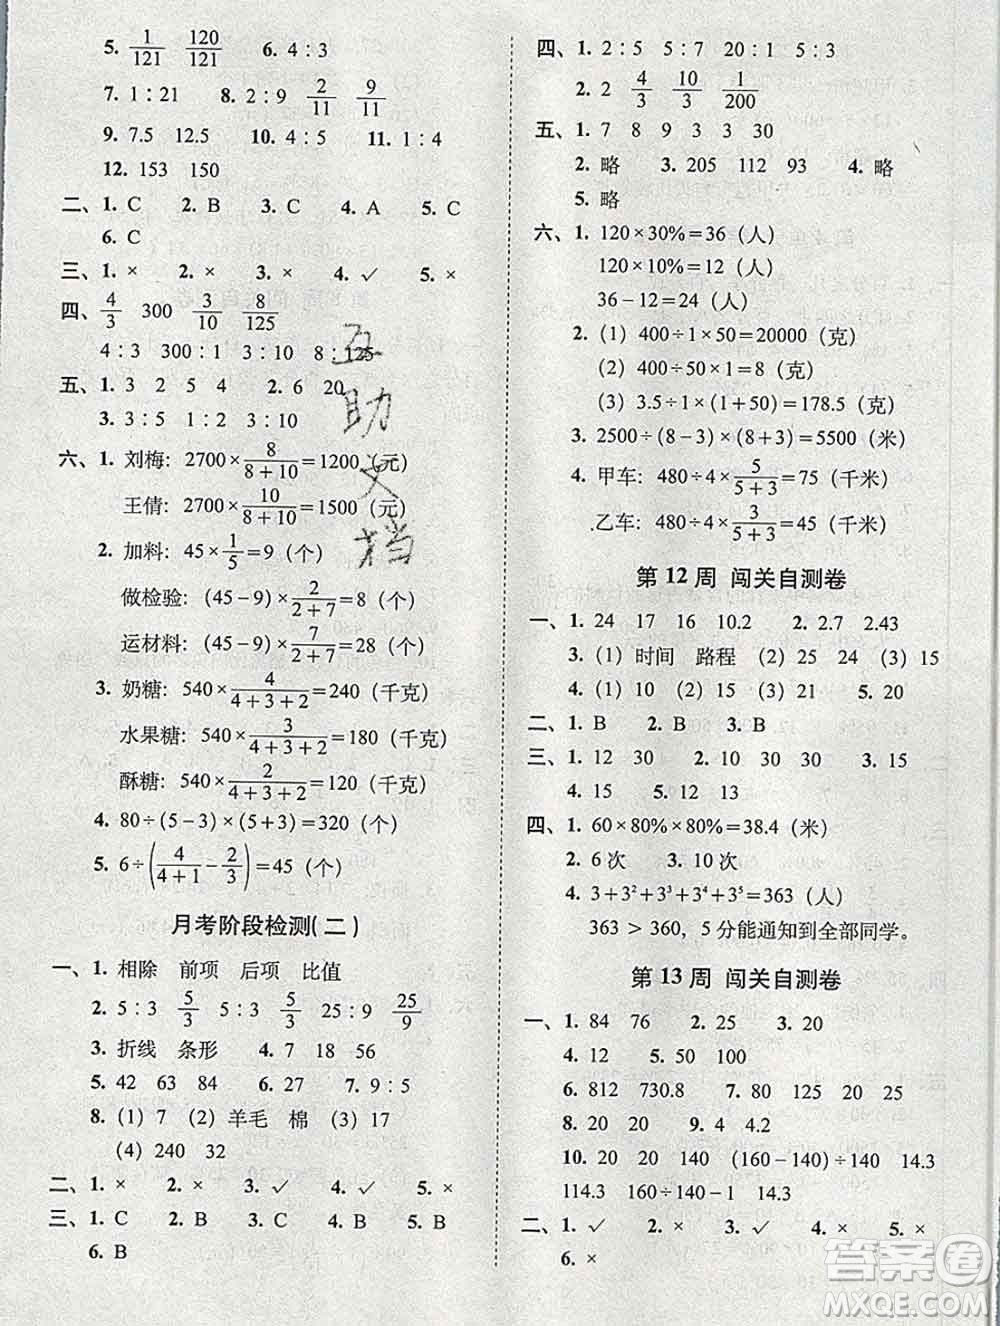 5. 1/121 120/121 6. 4∶3
7. 1∶21 8. 2∶9 2/11 9/11
9. 7.5 12.5 10. 4∶5 11. 1∶4
12. 153 150
二、1. C 2. B 3. C 4. A 5. C
6. C
三、1. × 2. × 3. × 4. ✓ 5. ×
四、4/3 300 3/10 8/125
4∶3 300∶1 3∶10 8∶125
五、1. 3 2 5 4 2. 6 20
3. 3∶5 1∶2 9∶10
六、1. 刘梅: 2700×8/(8+10)=1200(元)
王倩: 2700×10/(8+10)=1500(元)
2. 加料: 45×1/5=9(个)
做检验: (45-9)×2/(2+7)=8(个)
运材料: (45-9)×7/(2+7)=28(个)
3. 奶糖: 540×4/(4+3+2)=240(千克)
水果糖: 540×3/(4+3+2)=180(千克)
酥糖: 540×2/(4+3+2)=120(千克)
4. 80÷(5-3)×(5+3)=320(个)
5. 6÷(4/(4+1)-2/3)=45(个)
月考阶段检测(二)
一、1. 相除 前项 后项 比值
2. 5∶3 5/3 5∶3 5/3 25∶9 25/9
3. 折线 条形 4. 7 18 56
5. 42 63 84 6. 27 7. 9∶5
8. (1) 7 (2) 羊毛 棉 (3) 17
(4) 240 32
二、1. × 2. × 3. ✓ 4. ✓ 5. ×
三、1. C 2. B 3. C 4. B 5. B
6. B
互
助
文
档
四、1. 2∶5 5∶7 20∶1 5∶3
2. 2 4/3 10/3 1/200
五、1. 7 8 9 3 3 30
2. 略 3. 205 112 93 4. 略
5. 略
六、1. 120×30%=36(人)
120×10%=12(人)
36-12=24(人)
2. (1) 400÷1×50=20000(克)
(2) 400÷50×1=8(克)
(3) 3.5÷1×(1+50)=178.5(克)
3. 2500÷(8-3)×(8+3)=5500(米)
4. 甲车: 480÷4×5/(5+3)=75(千米)
乙车: 480÷4×3/(5+3)=45(千米)
第12周 闯关自测卷
一、1. 24 17 16 10.2 2. 2.7 2.43
3. (1) 时间 路程 (2) 25 24 (3) 15
4. (1) 10 (2) 15 (3) 21 5. 20
二、1. B 2. B 3. B
三、1. 12 30 2. 10 30 3. 15
4. 15 5. 12 13
四、1. 60×80%×80%=38.4(米)
2. 6次 3. 10次
4. 3+3²+3³+3⁴+3⁵=363(人)
363 > 360, 5分能通知到全部同学。
第13周 闯关自测卷
一、1. 84 76 2. 25 3. 20
4. 12 5. 50 100
6. 812 730.8 7. 80 125 20 25
8. 20 20 9. 4 4.2
10. 20 140 (160-140)÷140 14.3
114.3 160÷140-1 14.3
二、1. ✓ 2. × 3. ✓ 4. × 5. ×
6. ×
答案圈
MXQE.COM